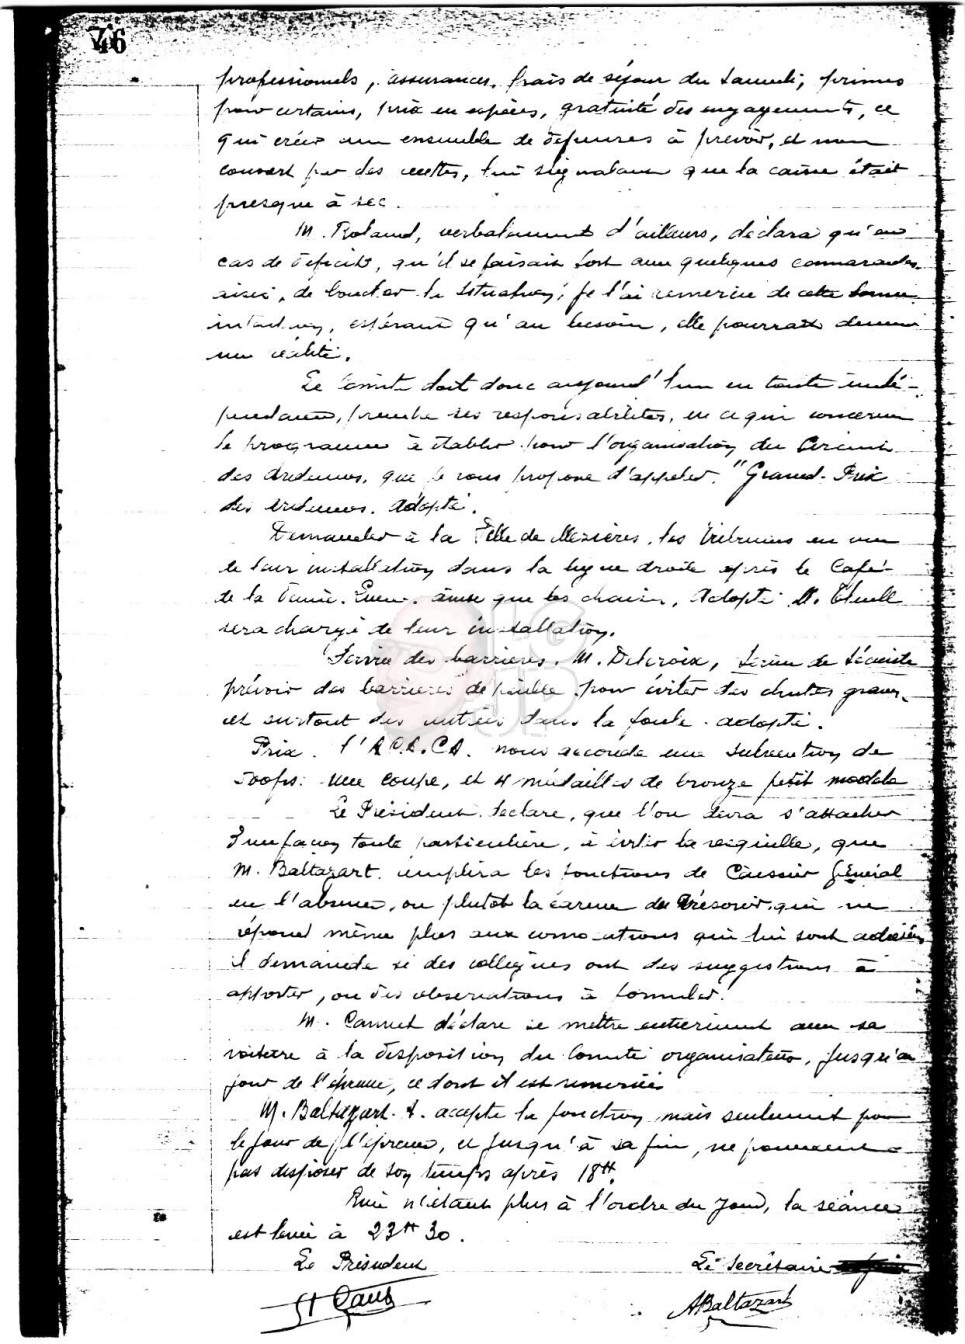 46
professionnels, assurances, frais de séjour du Samedi, primes
pour certains, prix en espèces, gratuité des engagements, ce
qui crée un ensemble de dépenses à prévoir, et non
couvert par des recettes, lui signalant que la caisse était
presque à sec.
M. Roland, verbalement d'ailleurs, déclara qu'en
cas de déficit, qu'il se faisait fort avec quelques camarades
aisés, de boucler la situation; je l'ai remercié de cette bonne
intention, espérant qu'au besoin, elle pourrait devenir
une réalité.
Le Comité doit donc aujourd'hui en toute indé-
pendance, prendre ses responsabilités, en ce qui concerne
le programme à établir pour l'organisation du Circuit
des Ardennes, que je vous propose d'appeler "Grand-Prix
des Ardennes. Adopté.
Demander à la Ville de Mézières, les Tribunes en vue
de leur installation dans la ligne droite après le Café
de la ainsi que les chaises, Adopté M.
sera chargé de leur installation.
Service des barrières. M. Delcroix, Service de Sécurité
prévoir des barrières de paille pour éviter des chutes graves,
et surtout des entrées dans la foule. adopté.
Prix. l' nous accorde une subvention de
une coupe, et 4 médailles de bronze petit modèle
Le Président déclare, que l'on devra s'attacher
d'une façon toute particulière, à éviter la resquille, que
M. Baltazart remplira les fonctions de Caissier Général
en l'absence, ou plutôt la carence du Trésorier qui ne
répond même plus aux convocations qui lui sont adressées
il demande si des collègues ont des suggestions à
apporter, ou des observations à formuler.
M. Cannet déclare se mettre entièrement avec sa
voiture à la disposition du Comité organisateur, jusqu'au
jour de l'épreuve, ce dont il est remercié
M. Baltazart A. accepte la fonction, mais seulement pour
le jour de l'épreuve, et jusqu'à sa fin, ne pouvant
pas disposer de son temps après 18H.
Rien n'étant plus à l'ordre du jour, la séance
est levée à 23H 30.
Le Président
Le Secrétaire
ABaltazart